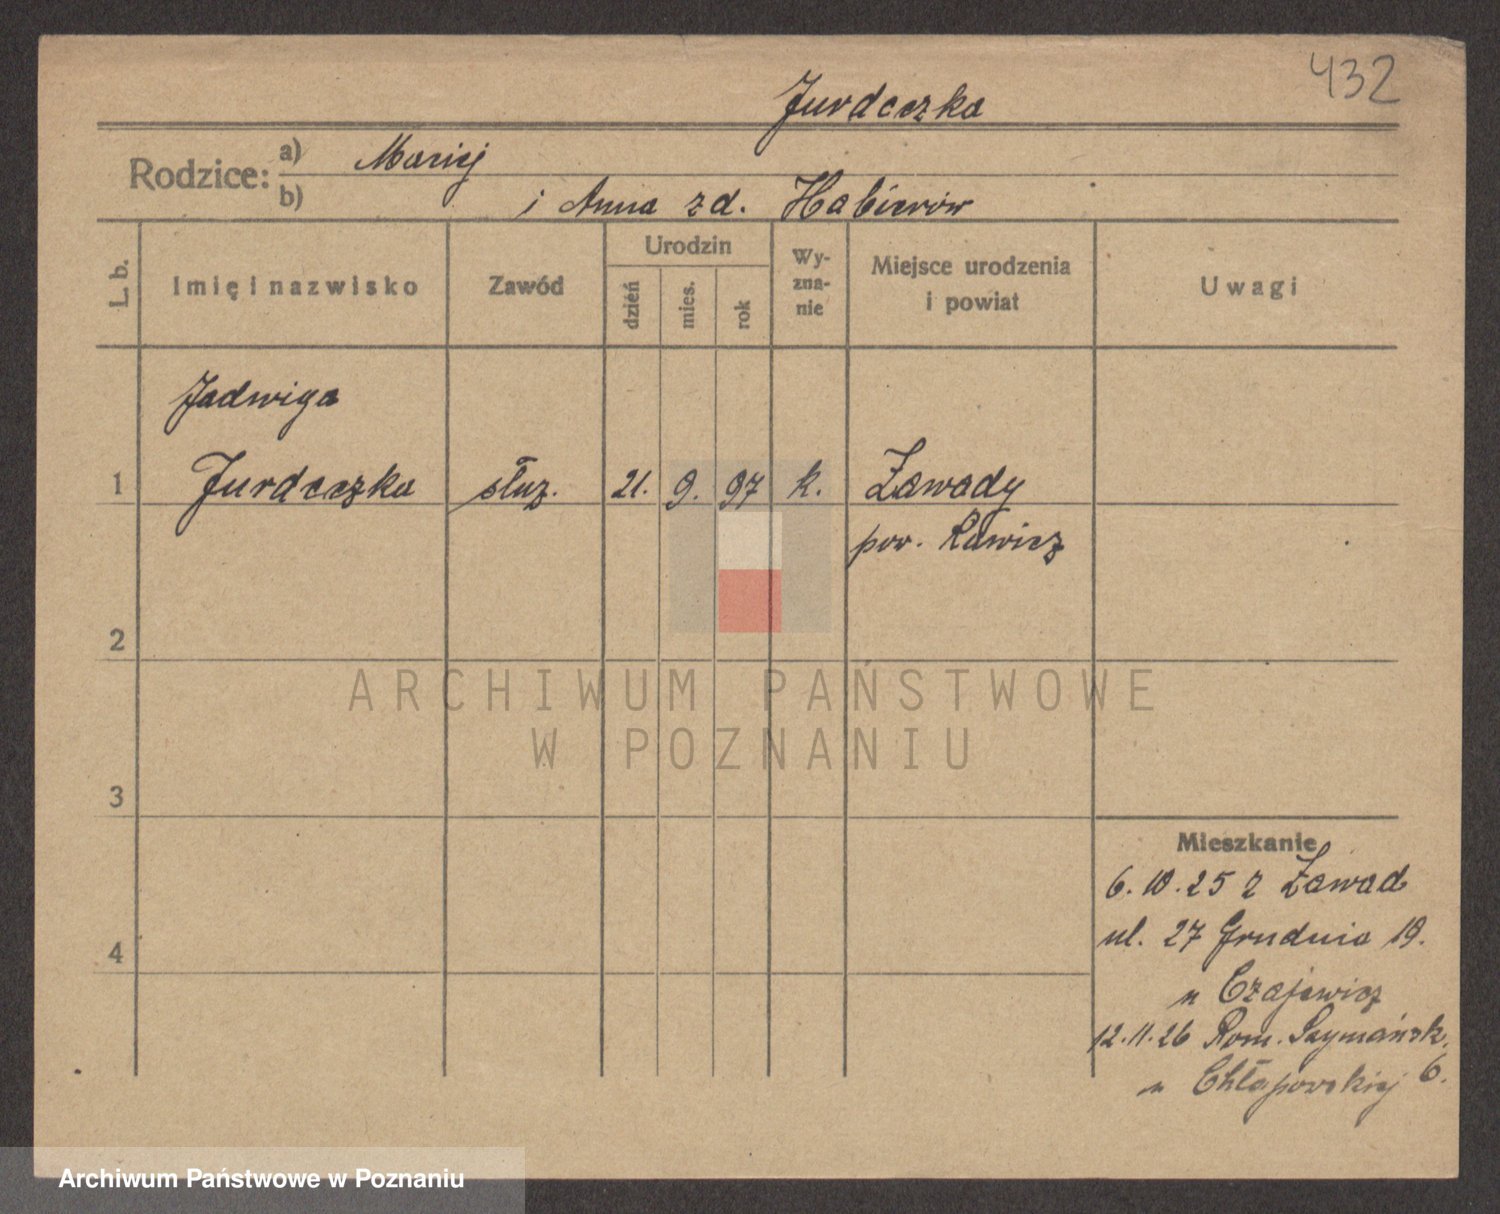 432
Jurdeczka
Rodzice: a) Maciej
b) i Anna zd. Habierów
L. b. Imię i nazwisko Zawód Urodzin Wy-zna-nie Miejsce urodzenia i powiat Uwagi
dzień mies. rok
Jadwiga
1 Jurdeczka służ. 21. 9. 97 k. Zawady
pow. Rawicz
2
3
4
Mieszkanie
6. 10. 25 z Zawad
ul. 27 Grudnia 19.
u Czajewicz
12. 11. 26 Rom. Szymańsk. 6.
u Chłapowskiej
ARCHIWUM PAŃSTWOWE
W POZNANIU
Archiwum Państwowe w Poznaniu